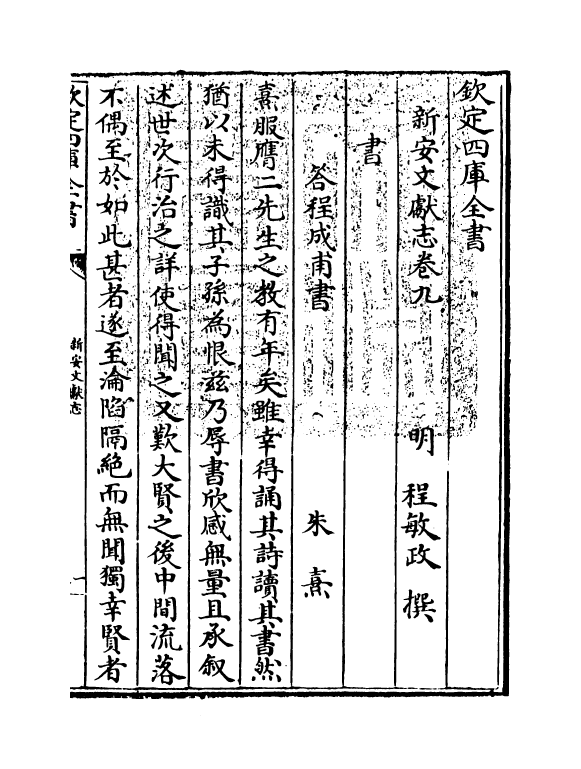 欽定四庫全書
新安文獻志卷九
明 程敏政 撰
書
答程成甫書 朱熹
熹服膺二先生之教有年矣雖幸得誦其詩讀其書然
猶以未得識其子孫為恨兹乃辱書欣感無量且承叙
述世次行治之詳使得聞之又歎大賢之後中間流落
不偶至於如此甚者遂至淪陷隔絶而無聞獨幸賢者
欽定四庫全書
新安文獻志
一